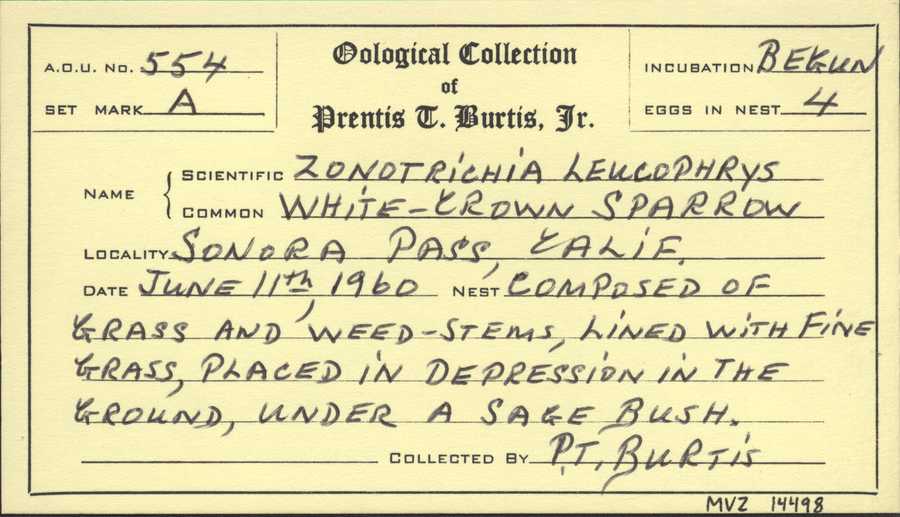 A.O.U. No. 554
SET MARK A
Oological Collection
of
Prentis T. Burtis, Jr.
INCUBATION BEGUN
EGGS IN NEST 4
NAME
SCIENTIFIC ZONOTRICHIA LEUCOPHRYS
COMMON WHITE-CROWN SPARROW
LOCALITY SONORA PASS, CALIF.
DATE JUNE 11th, 1960 NEST COMPOSED OF
GRASS AND WEED-STEMS, LINED WITH FINE
GRASS, PLACED IN DEPRESSION IN THE
GROUND, UNDER A SAGE BUSH.
COLLECTED BY P.T. BURTIS
MVZ 14498